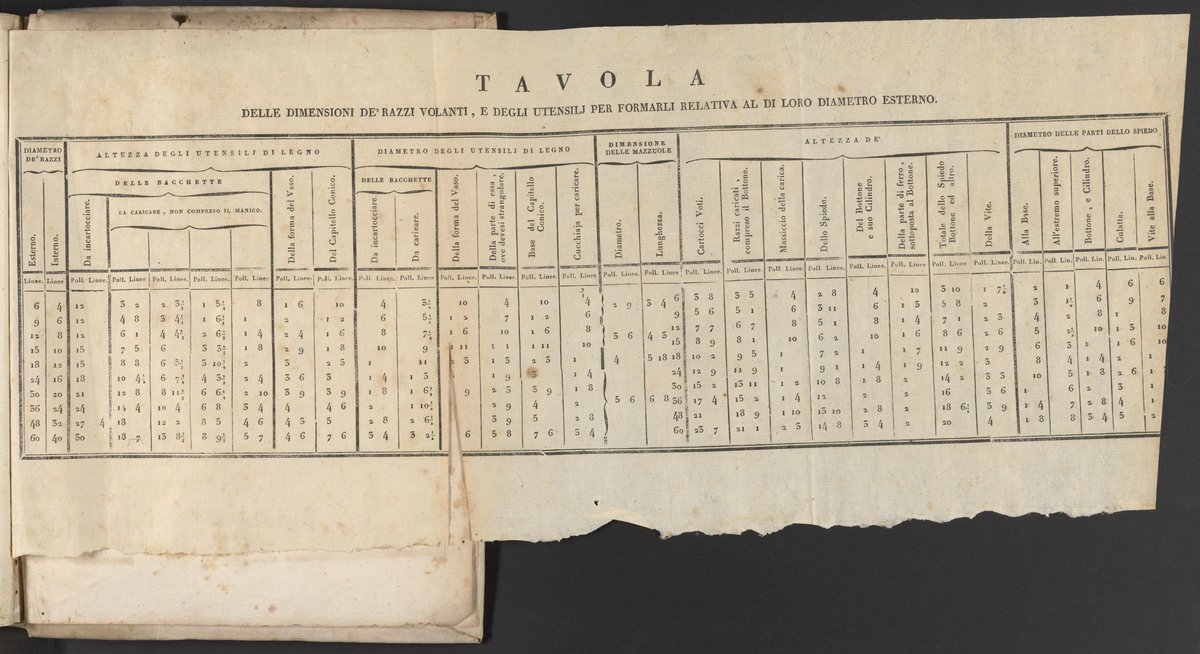 TAVOLA
DELLE DIMENSIONI DE' RAZZI VOLANTI, E DEGLI UTENSILJ PER FORMARLI RELATIVA AL DI LORO DIAMETRO ESTERNO.
DIAMETRO DE' RAZZI
ALTEZZA DEGLI UTENSILJ DI LEGNO
DIAMETRO DEGLI UTENSILJ DI LEGNO
DIMENSIONE DELLE MAZZUOLE
ALTEZZA DE'
DIAMETRO DELLE PARTI DELLO SPIEDO
DELLE BACCHETTE
DELLE BACCHETTE
DA CARICARE, NON COMPRESO IL MANICO.
Esterno.
Interno.
Da incartocciare.
Della forma del Vaso.
Del Capitello Conico.
Da incartocciare.
Da caricare.
Della forma del Vaso.
Della parte di essa, ove devesi strangolare.
Base del Capitello Conico.
Cucchiaja per caricare.
Diametro.
Lunghezza.
Cartocci Voti.
Razzi caricati, compreso il Bottone.
Massiccio della carica.
Dello Spiedo.
Del Bottone e suo Cilindro.
Della parte di ferro, sottoposta al Bottone.
Totale dello Spiedo Bottone ed altro.
Della Vite.
Alla Base.
All'estremo superiore.
Bottone, e Cilindro.
Culatta.
Vite alla Base.
Linee. Linee. Poll. Linee. Poll. Linee. Poll. Linee. Poll. Linee. Poll. Linee. Poll. Linee. Poll. Linee. Poll. Linee. Poll. Linee. Poll. Linee. Poll. Linee. Poll. Linee. Poll. Linee. Poll. Linee. Poll. Linee. Poll. Linee. Poll. Linee. Poll. Linee. Poll. Linee. Poll. Linee. Poll. Linee. Poll. Linee. Poll. Linee. Poll. Lin. Poll. Lin. Poll. Lin. Poll. Lin. Poll. Lin.
6 4 12 3 2 2 3½ 1 5½ 8 1 6 10 4 3½ 10 4 10 4 2 9 3 4 6 3 8 3 5 4 2 8 4 10 3 10 1 7½ 2 1 4 6 6
9 6 12 4 8 3 4½ 1 6½ 1 2 1 2 6 5½ 1 2 7 1 2 6 9 5 6 5 1 6 3 11 6 1 3 5 8 2 3 1½ 6 9 7
12 8 12 6 1 4 4½ 2 6½ 1 4 2 4 1 6 8 7½ 1 6 10 1 6 8 5 6 4 3 12 7 7 6 7 8 5 1 8 1 4 7 1 2 3 4 2 8 1 8
15 10 15 7 5 6 3 3½ 1 8 2 9 1 8 10 9 1 11 1 1 1 11 10 15 8 9 8 1 10 6 2 10 1 6 8 6 2 6 5 2½ 10 1 3 10
18 12 15 8 8 6 5½ 3 10½ 2 3 2 3 1 11 2 3 1 3 2 3 1 4 5 18 18 10 2 9 5 1 7 2 1 1 7 11 9 2 9 6 3 1 1 6 10
24 16 18 10 4½ 6 7½ 4 3½ 2 4 3 6 3 1 4 1 3 1 9 3 1 4 24 12 9 11 9 1 9 1 1 4 1 9 12 2 3 8 4 1 4 2 1
30 20 21 12 8 8 11½ 6 6½ 2 10 3 9 3 9 1 8 1 6½ 9 2 3 3 9 1 8 30 15 2 13 11 1 2 10 8 1 8 2 14 2 3 3 10 5 1 8 2 6 1
36 24 24 14 4 10 4 6 8 3 4 4 4 6 2 1 10½ 2 9 4 2 5 6 6 8 36 17 4 15 2 1 4 12 2 2 16 3 6 1 6 2 3 1
48 32 27 4 18 12 2 8 5 4 6 4 3 5 2 8 2 6½ 3 9 5 2 8 48 21 18 9 1 10 13 10 2 8 2 18 6½ 3 9 1 4 7 2 8 4
60 40 30 18 7 13 8½ 8 9½ 5 7 4 6 7 6 3 4 3 2½ 6 5 8 7 6 3 4 60 23 7 21 1 2 3 14 8 3 4 2 20 4 1 8 8 3 4 5 2